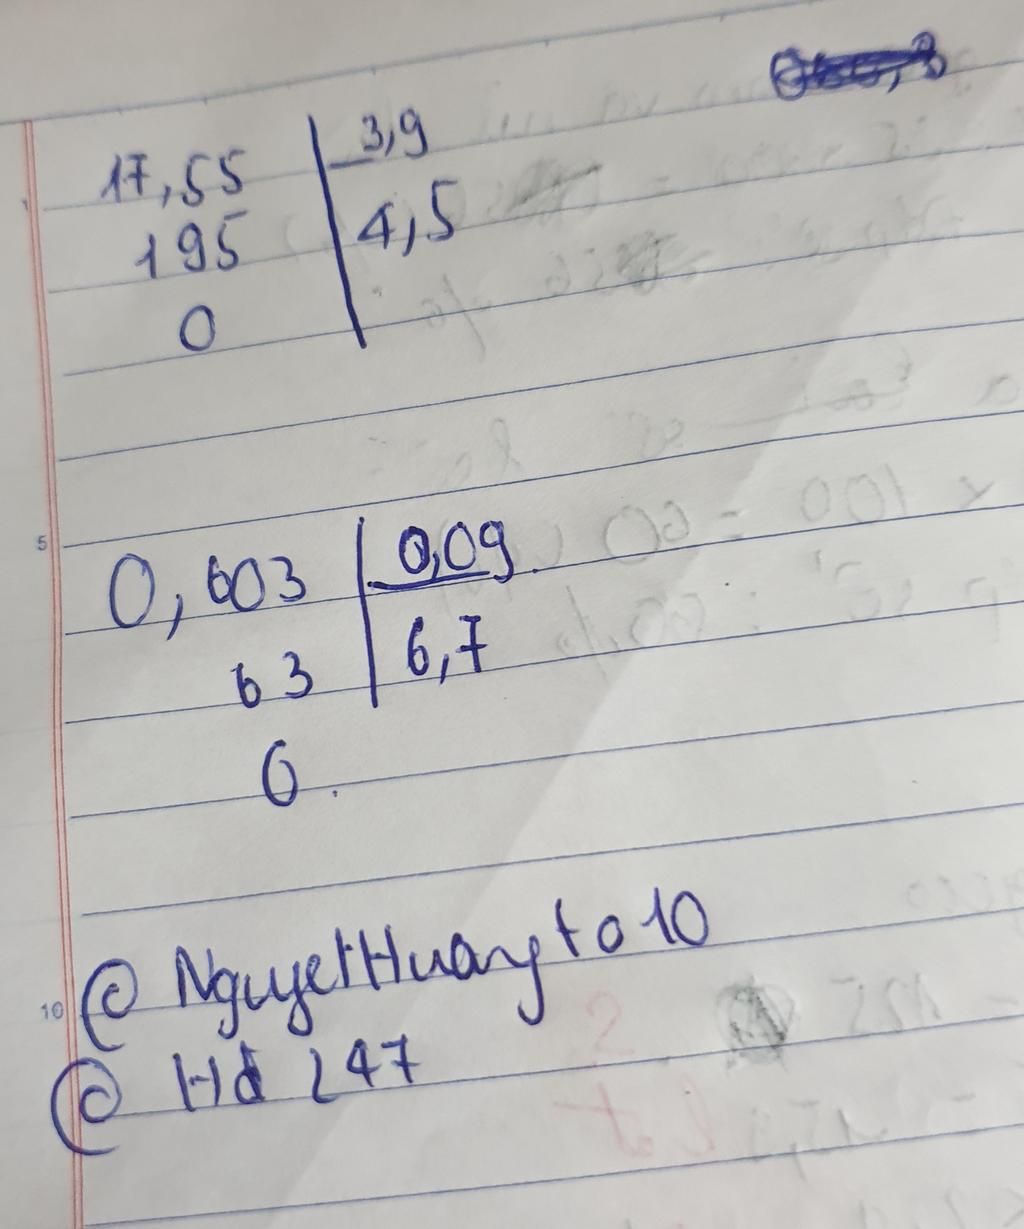 17,55 3,9
195 4,5
0
5
0,603 0,09
63 6,7
0.
@ NguyetHuongto10
10
@ Hd 247